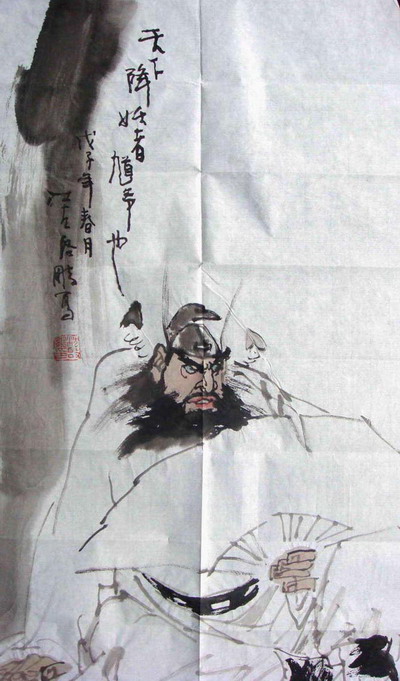 天下降妖者馗爷也
戊子年春月
江左啓鹏写